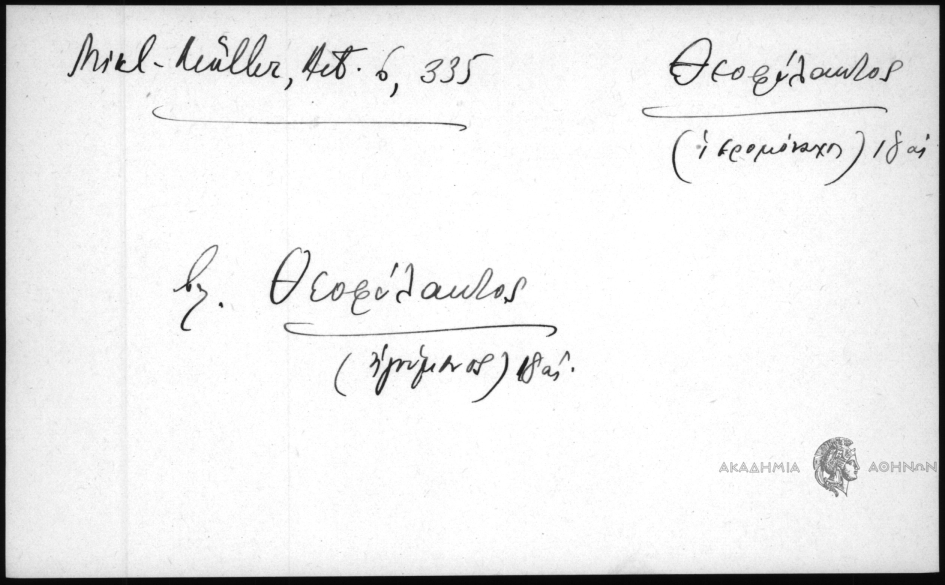 Mikl-Müller, Act. 6, 335
Θεοφύλακτος
(ἱερομόναχος) 18 αἰ
βλ. Θεοφύλακτος
(ἡγούμενος) 18 αἰ.
ΑΚΑΔΗΜΙΑ ΑΘΗΝΩΝ